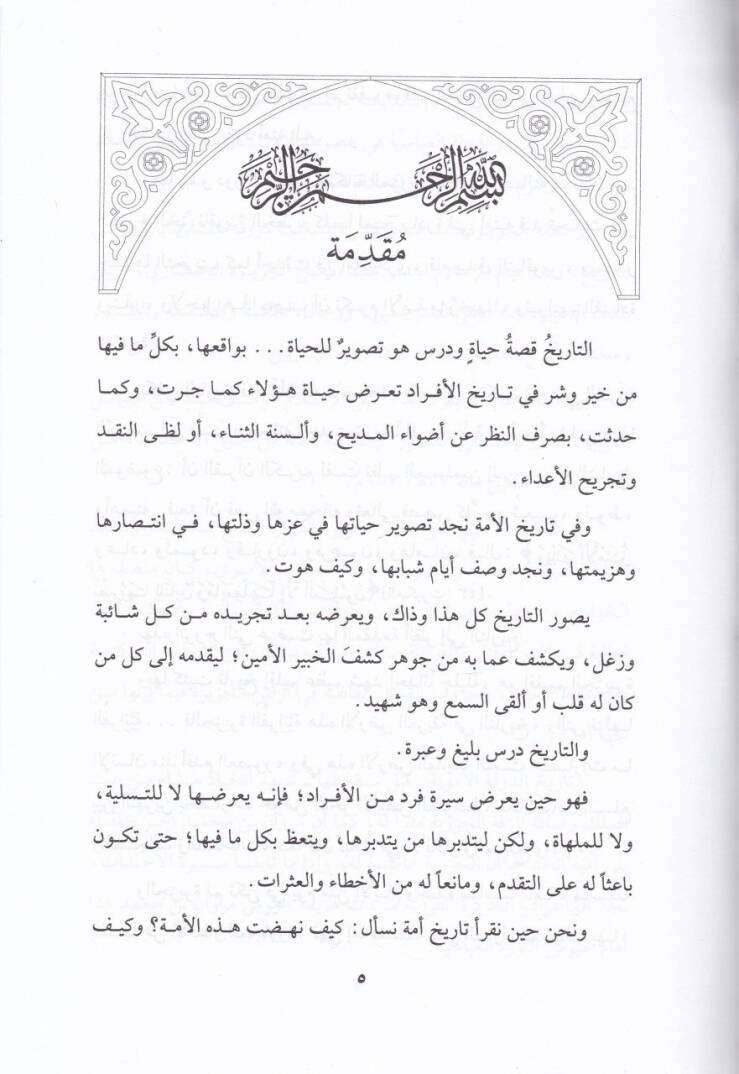 بسم الله الرحمن الرحيم
مُقَدِّمَة
التاريخُ قصةُ حياةٍ ودرس هو تصويرٌ للحياة... بواقعها، بكلِّ ما فيها
من خير وشر في تاريخ الأفراد تعرض حياة هؤلاء كما جرت، وكما
حدثت، بصرف النظر عن أضواء المديح، وألسنة الثناء، أو لظى النقد
وتجريح الأعداء.
وفي تاريخ الأمة نجد تصوير حياتها في عزها وذلتها، في انتصارها
وهزيمتها، ونجد وصف أيام شبابها، وكيف هوت.
يصور التاريخ كل هذا وذاك، ويعرضه بعد تجريده من كل شائبة
وزغل، ويكشف عما به من جوهر كشفَ الخبير الأمين؛ ليقدمه إلى كل من
كان له قلب أو ألقى السمع وهو شهيد.
والتاريخ درس بليغ وعبرة.
فهو حين يعرض سيرة فرد من الأفراد؛ فإنه يعرضها لا للتسلية،
ولا للملهاة، ولكن ليتدبرها من يتدبرها، ويتعظ بكل ما فيها؛ حتى تكون
باعثاً له على التقدم، ومانعاً له من الأخطاء والعثرات.
ونحن حين نقرأ تاريخ أمة نسأل: كيف نهضت هذه الأمة؟ وكيف
٥